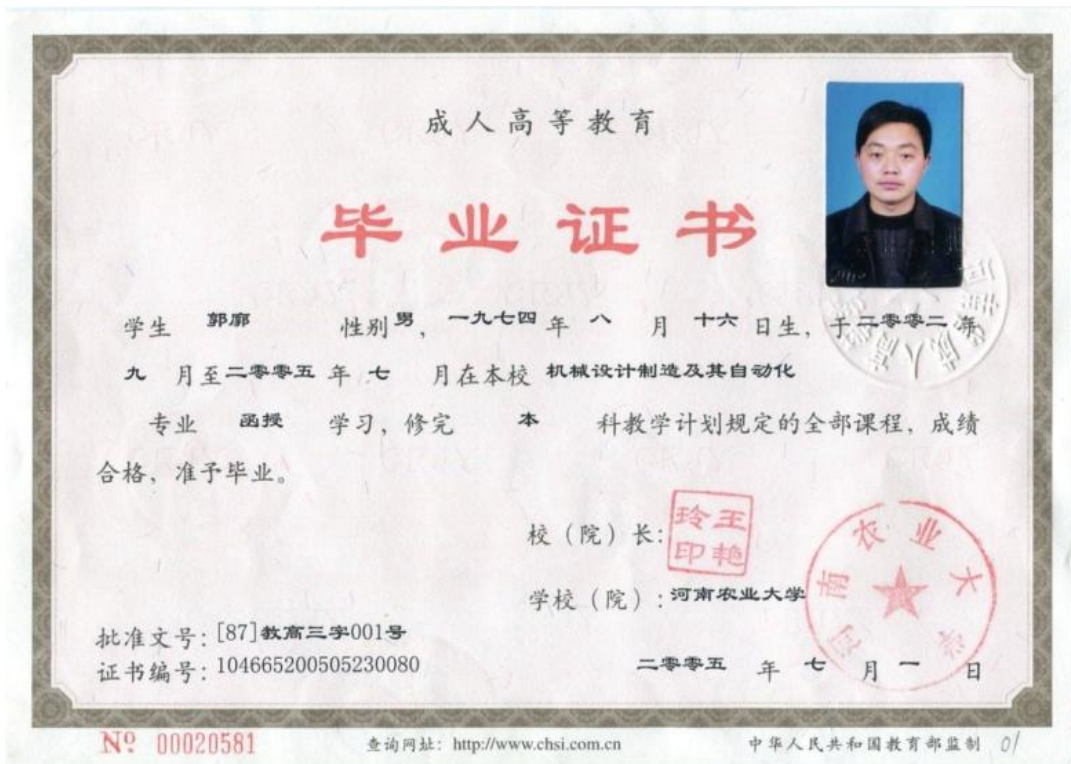 成人高等教育
毕业证书
学生 郭廓 性别 男，一九七四 年 八 月 十六 日生，于 二零零二 年
九 月至 二零零五 年 七 月在本校 机械设计制造及其自动化
专业 函授 学习，修完 本 科教学计划规定的全部课程，成绩
合格，准予毕业。
校（院）长：
王艳玲印
学校（院）：河南农业大学
河南农业大学
批准文号：[87]教高三字001号
证书编号：104665200505230080
二零零五 年 七 月 一 日
Nº 00020581
查询网址：http://www.chsi.com.cn
中华人民共和国教育部监制 01